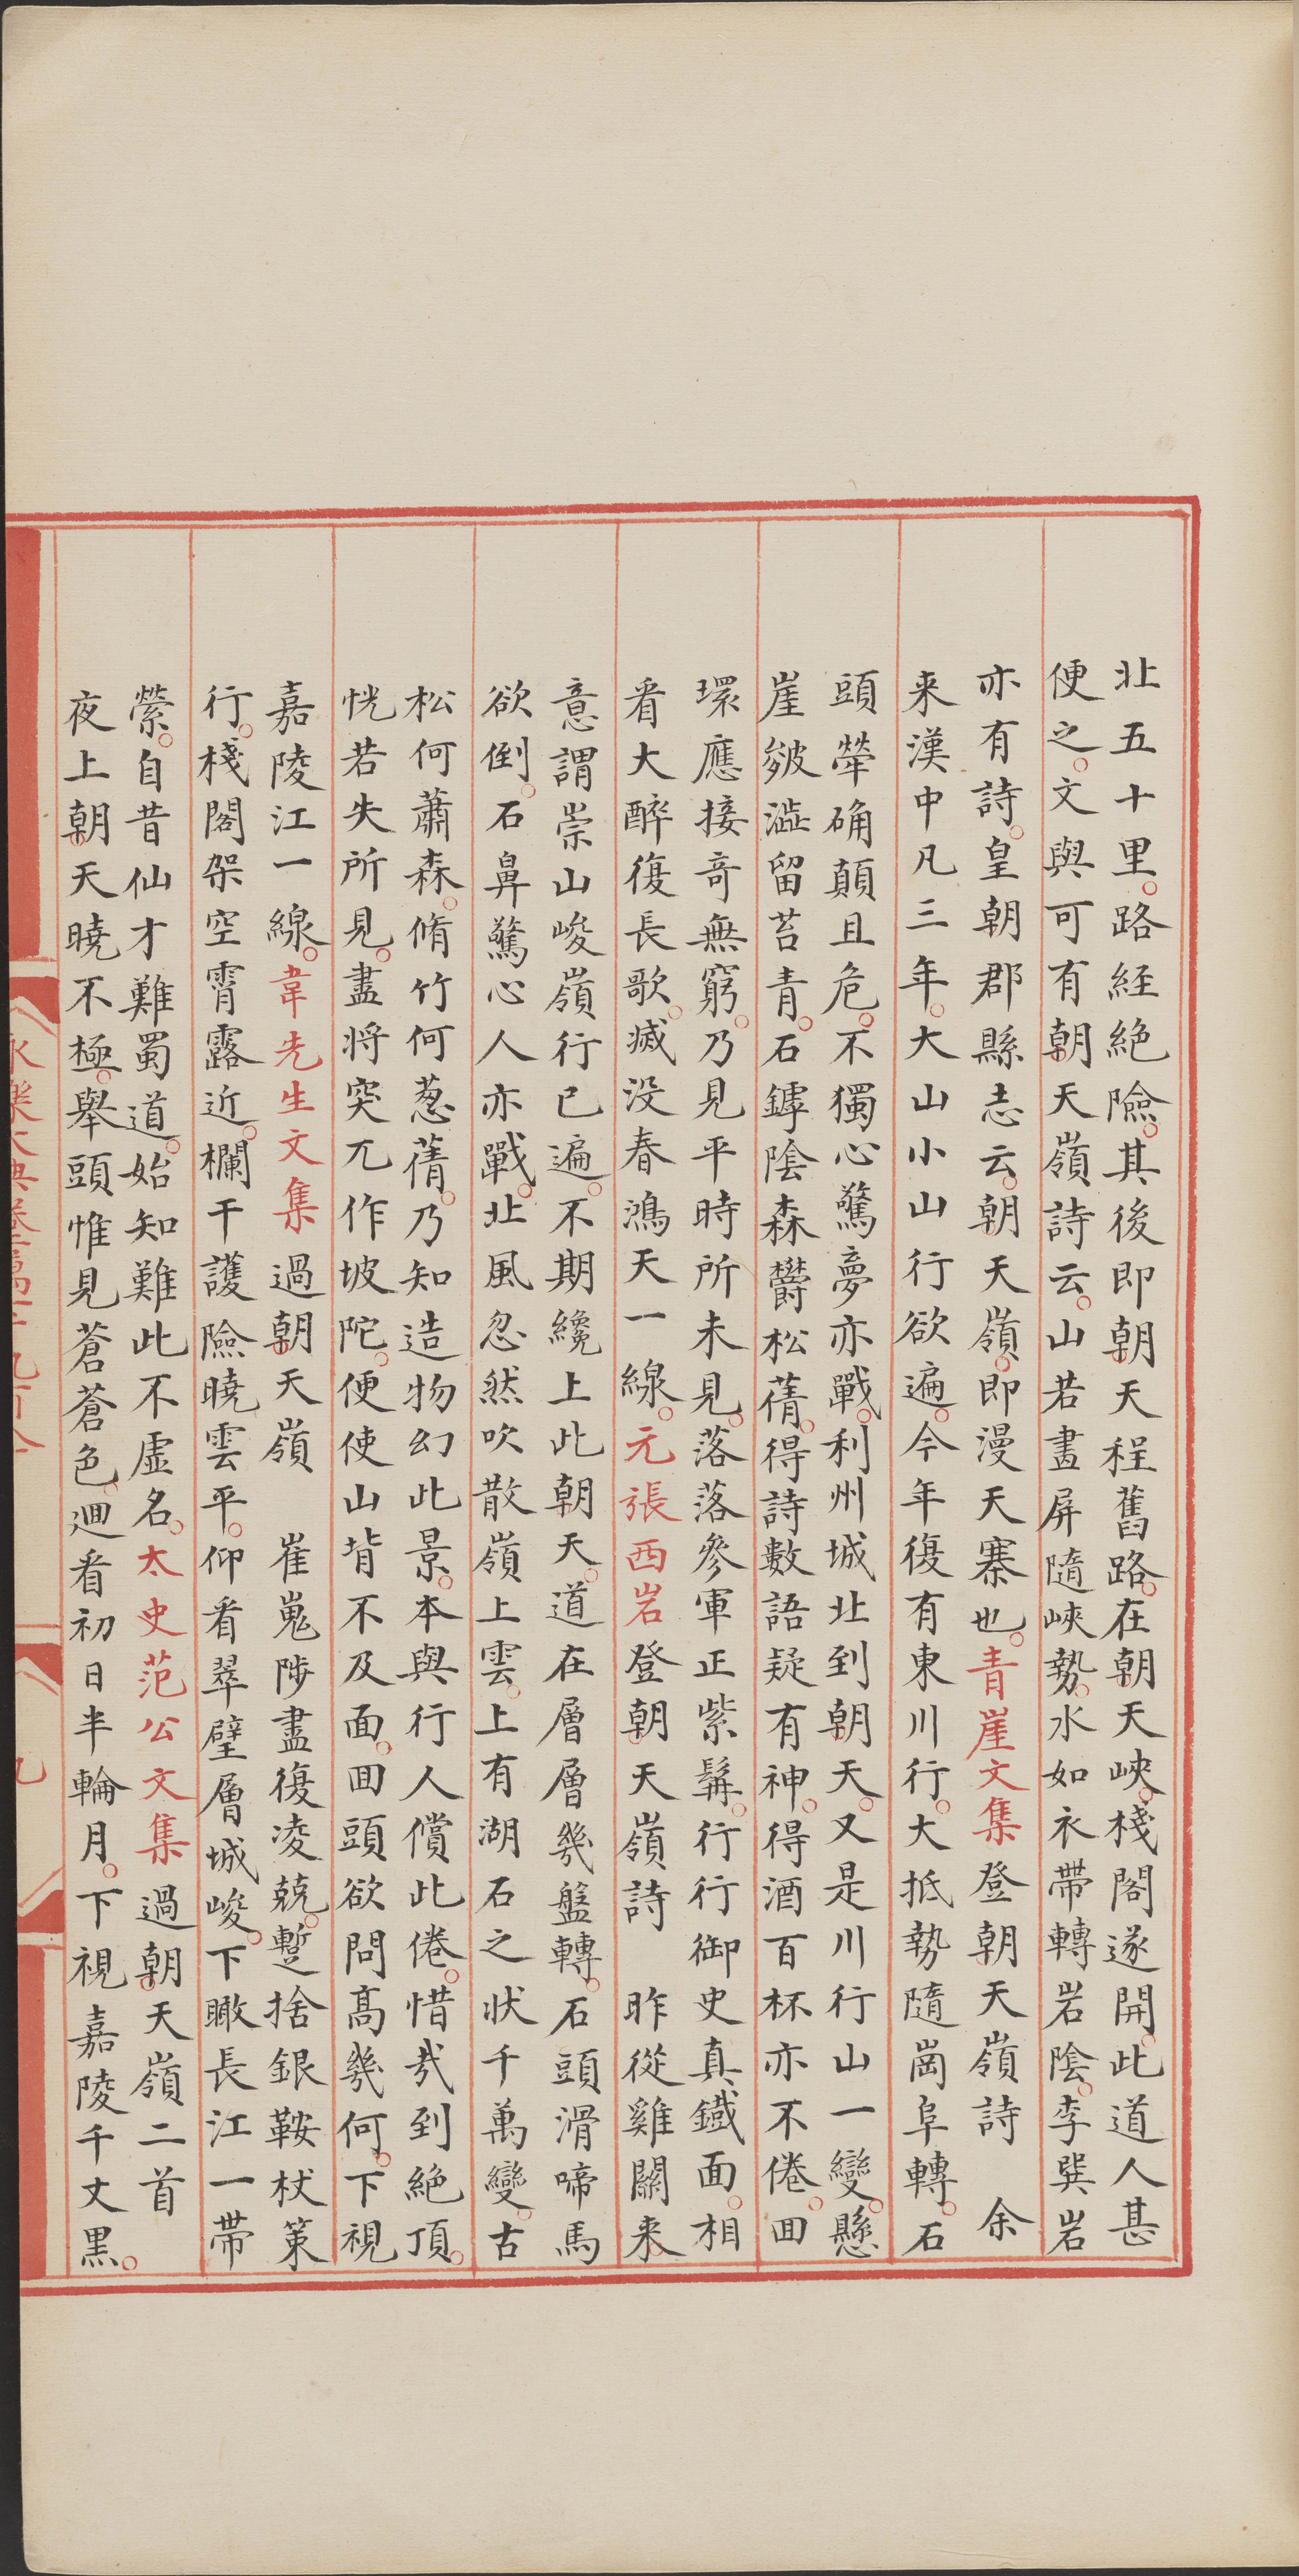 北五十里路経絶險其後即朝天程舊路在朝天峽棧閣遂開此道人甚
便之文與可有朝天嶺詩云山若畫屏隨峽勢水如衣帶轉岩陰李巽岩
亦有詩皇朝郡縣志云朝天嶺即漫天寨也青崖文集登朝天嶺詩　余
来漢中凡三年大山小山行欲遍今年復有東川行大抵勢隨崗阜轉石
頭犖确顛且危不獨心驚夢亦戰利州城北到朝天又是川行山一變懸
崖皴澁留苔青石罅陰森欝松蒨得詩數語疑有神得酒百杯亦不倦囬
環應接竒無窮乃見平時所未見落落參軍正紫髯行行御史真鐡面相
看大醉復長歌滅没春鴻天一線元張西岩登朝天嶺詩　昨從雞關来
意謂崇山峻嶺行已遍不期纔上此朝天道在層層幾盤轉石頭滑啼馬
欲倒石鼻驚心人亦戰北風忽然吹散嶺上雲上有湖石之状千萬變古
松何蕭森脩竹何葱蒨乃知造物幻此景本與行人償此倦惜㢤到絶頂
恍若失所見盡将突兀作坡陀便使山背不及面囬頭欲問高幾何下視
嘉陵江一線韋先生文集過朝天嶺　崔嵬陟盡復凌兢蹔捨銀鞍杖策
行棧閣架空霄露近欄干護險曉雲平仰看翠壁層城峻下瞰長江一帶
縈自昔仙才難蜀道始知難此不虚名太史范公文集過朝天嶺二首
夜上朝天曉不極舉頭惟見蒼蒼色迴看初日半輪月下視嘉陵千丈黒